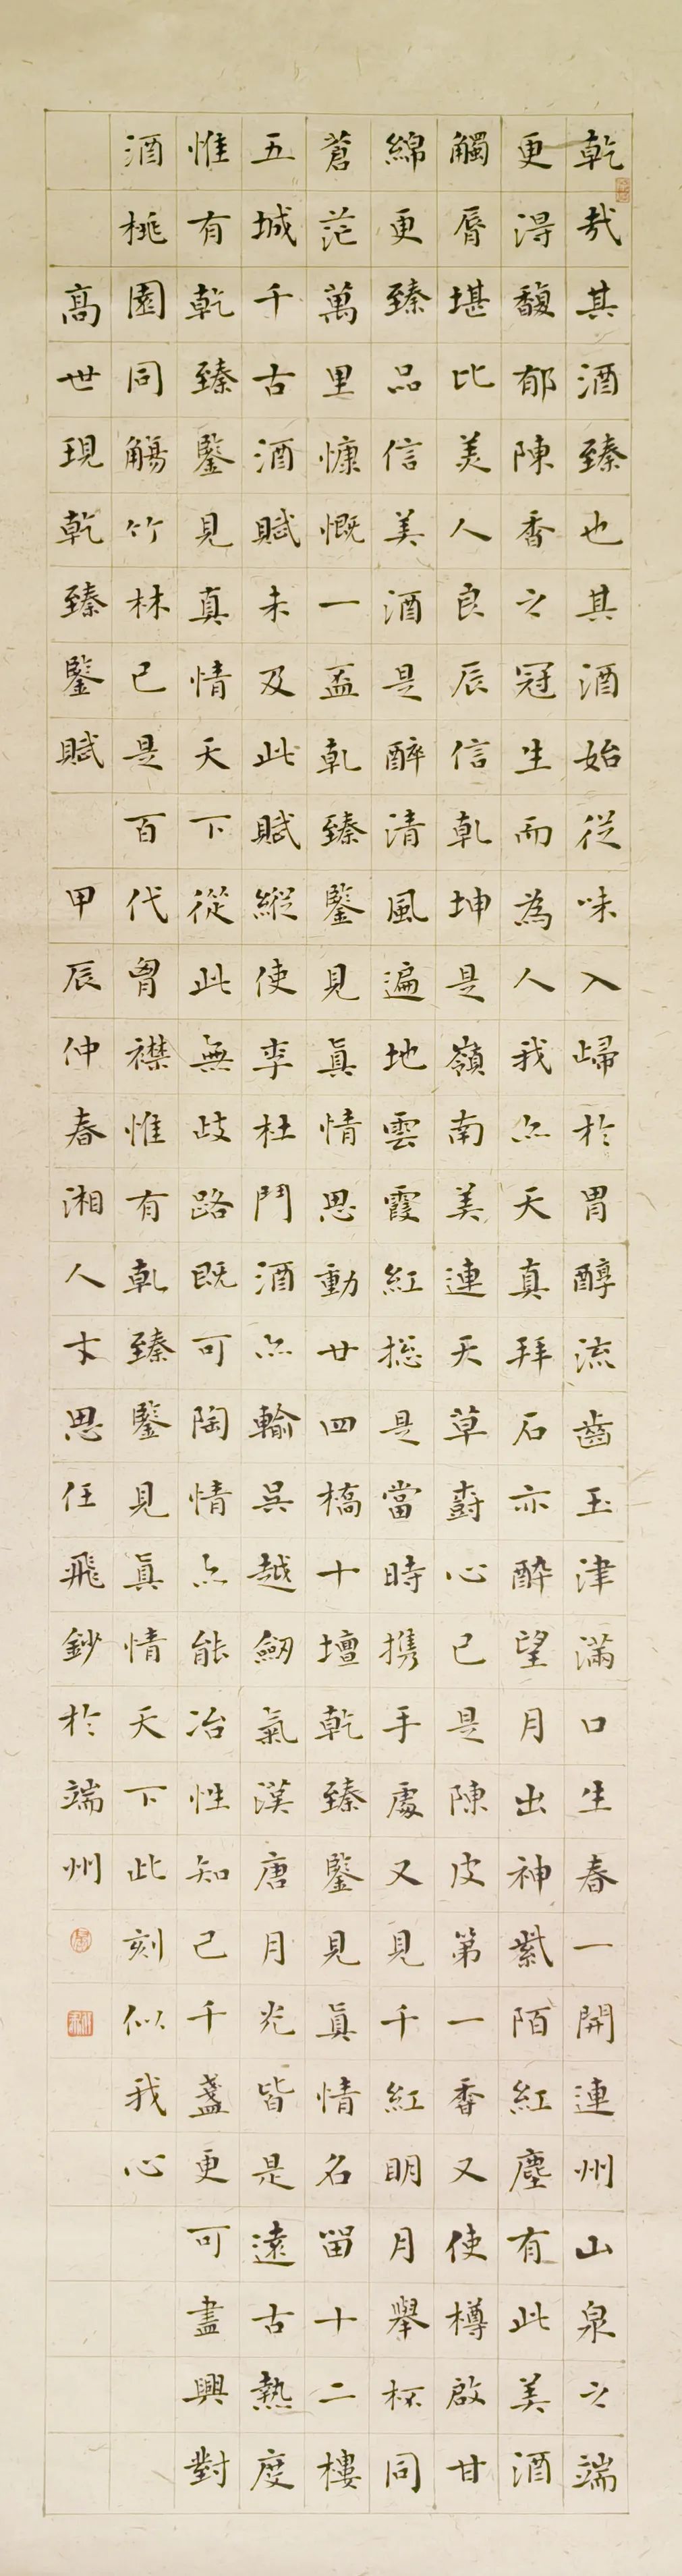 乾哉其酒臻也其酒始從味入歸於胃醇流齒玉津滿口生春一開連州山泉之端
更得馥郁陳香之冠生而為人我亦天真拜石亦醉望月出神紫陌紅塵有此美酒
觸脣堪比美人良辰信乾坤是嶺南美連天草壽心已是陳皮第一香又使樽啟甘
綿更臻品信美酒是醉清風遍地雲霞紅總是當時攜手處又見千紅明月舉杯同
蒼茫萬里慷慨一盃乾臻鑒見真情思動廿四橋十壇乾臻鑒見真情名留十二樓
五城千古酒賦未及此賦縱使李杜鬥酒亦輸吳越劒氣漢唐月光皆是遠古熱度
惟有乾臻鑒見真情天下從此無歧路既可陶情亦能冶性知己千盞更可盡興對
酒桃園同觴竹林已是百代胷襟惟有乾臻鑒見真情天下此刻似我心
高世現乾臻鑒賦 甲辰仲春湘人卞思任飛鈔於端州